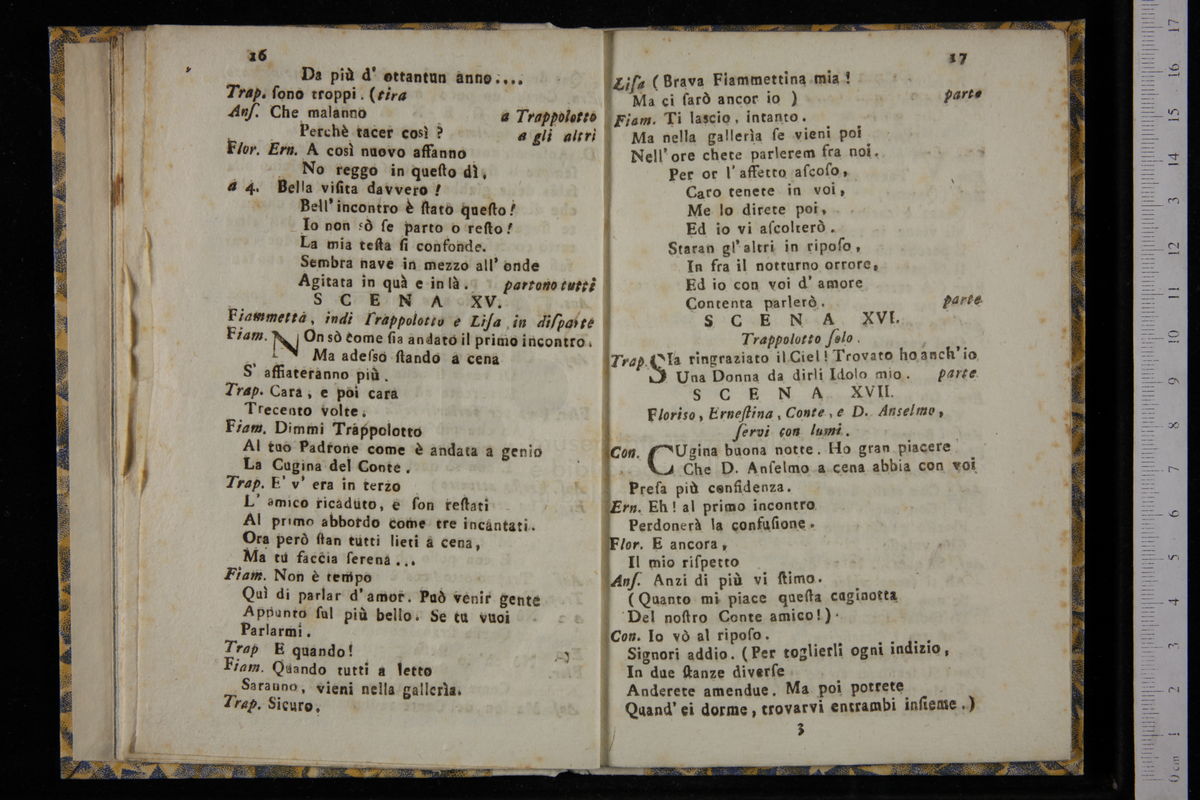 16
Da più d' ottantun anno....
Trap. ſono troppi. (tira
Anſ. Che malanno a Trappolotto
Perchè tacer così ? a gli altri
Flor. Ern. A così nuovo affanno
No reggo in queſto dì,
a 4. Bella viſita davvero !
Bell' incontro è ſtato queſto!
Io non sò ſe parto o reſto!
La mia teſta ſi confonde.
Sembra nave in mezzo all' onde
Agitata in quà e in là. partono tutti
SCENA XV.
Fiammetta, indi Trappolotto e Liſa in diſparte
Fiam. NOn sò come ſia andato il primo incontro.
Ma adeſso ſtando a cena
S' affiateranno più.
Trap. Cara, e poi cara
Trecento volte.
Fiam. Dimmi Trappolotto
Al tuo Padrone come è andata a genio
La Cugina del Conte.
Trap. E' v' era in terzo
L' amico ricaduto, e ſon reſtati
Al primo abbordo come tre incantati.
Ora però ſtan tutti lieti a cena,
Ma tu faccia ſerena...
Fiam. Non è tempo
Quì di parlar d'amor. Può venir gente
Appunto ſul più bello. Se tu vuoi
Parlarmi.
Trap E quando!
Fiam. Quando tutti a letto
Saranno, vieni nella gallerìa.
Trap. Sicuro.
17
Liſa (Brava Fiammettina mia !
Ma ci ſarò ancor io ) parte
Fiam. Ti laſcio, intanto.
Ma nella gallerìa ſe vieni poi
Nell' ore chete parlerem fra noi.
Per or l' affetto aſcoſo,
Caro tenete in voi,
Me lo direte poi,
Ed io vi aſcolterò.
Staran gl' altri in ripoſo,
In fra il notturno orrore,
Ed io con voi d' amore
Contenta parlerò. parte
SCENA XVI.
Trappolotto ſolo.
Trap. SIa ringraziato il Ciel! Trovato ho anch'io
Una Donna da dirli Idolo mio. parte
SCENA XVII.
Floriso, Erneſtina, Conte, e D. Anselmo,
ſervi con lumi.
Con. CUgina buona notte. Ho gran piacere
Che D. Anſelmo a cena abbia con voi
Preſa più confidenza.
Ern. Eh! al primo incontro
Perdonerà la confuſione.
Flor. E ancora,
Il mio riſpetto
Anſ. Anzi di più vi ſtimo.
(Quanto mi piace queſta cuginotta
Del noſtro Conte amico!)
Con. Io vò al ripoſo.
Signori addio. (Per toglierli ogni indizio,
In due ſtanze diverſe
Anderete amendue. Ma poi potrete
Quand' ei dorme, trovarvi entrambi inſieme.)
3